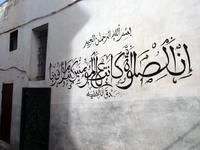 بسم الله الرحمن الرحيم
إن الصلوة كانت على المؤمنين كتابا موقوتا
صدق الله العظيم